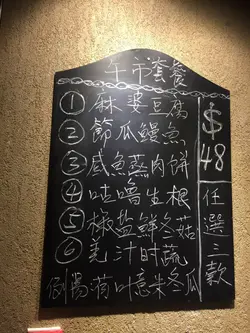 午市套餐
① 麻婆豆腐
② 節瓜鰻魚
③ 咸魚蒸肉餅
④ 咕嚕生根
⑤ 椒盐鮮冬菇
⑥ 羌汁时蔬
例湯
意米冬瓜
$48
任選三款